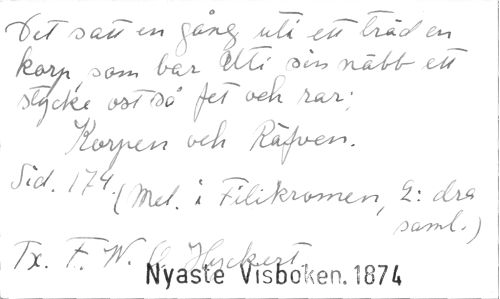 Det satt en gång uti ett träd en
korp, som bar Uti sin näbb ett
stycke ost så fet och rar;
Korpen och Räfven.
Sid. 174.
(Mel. i Filikromen, 2: dra
saml.)
Tx. F. W. Hyckert
Nyaste Visboken. 1874